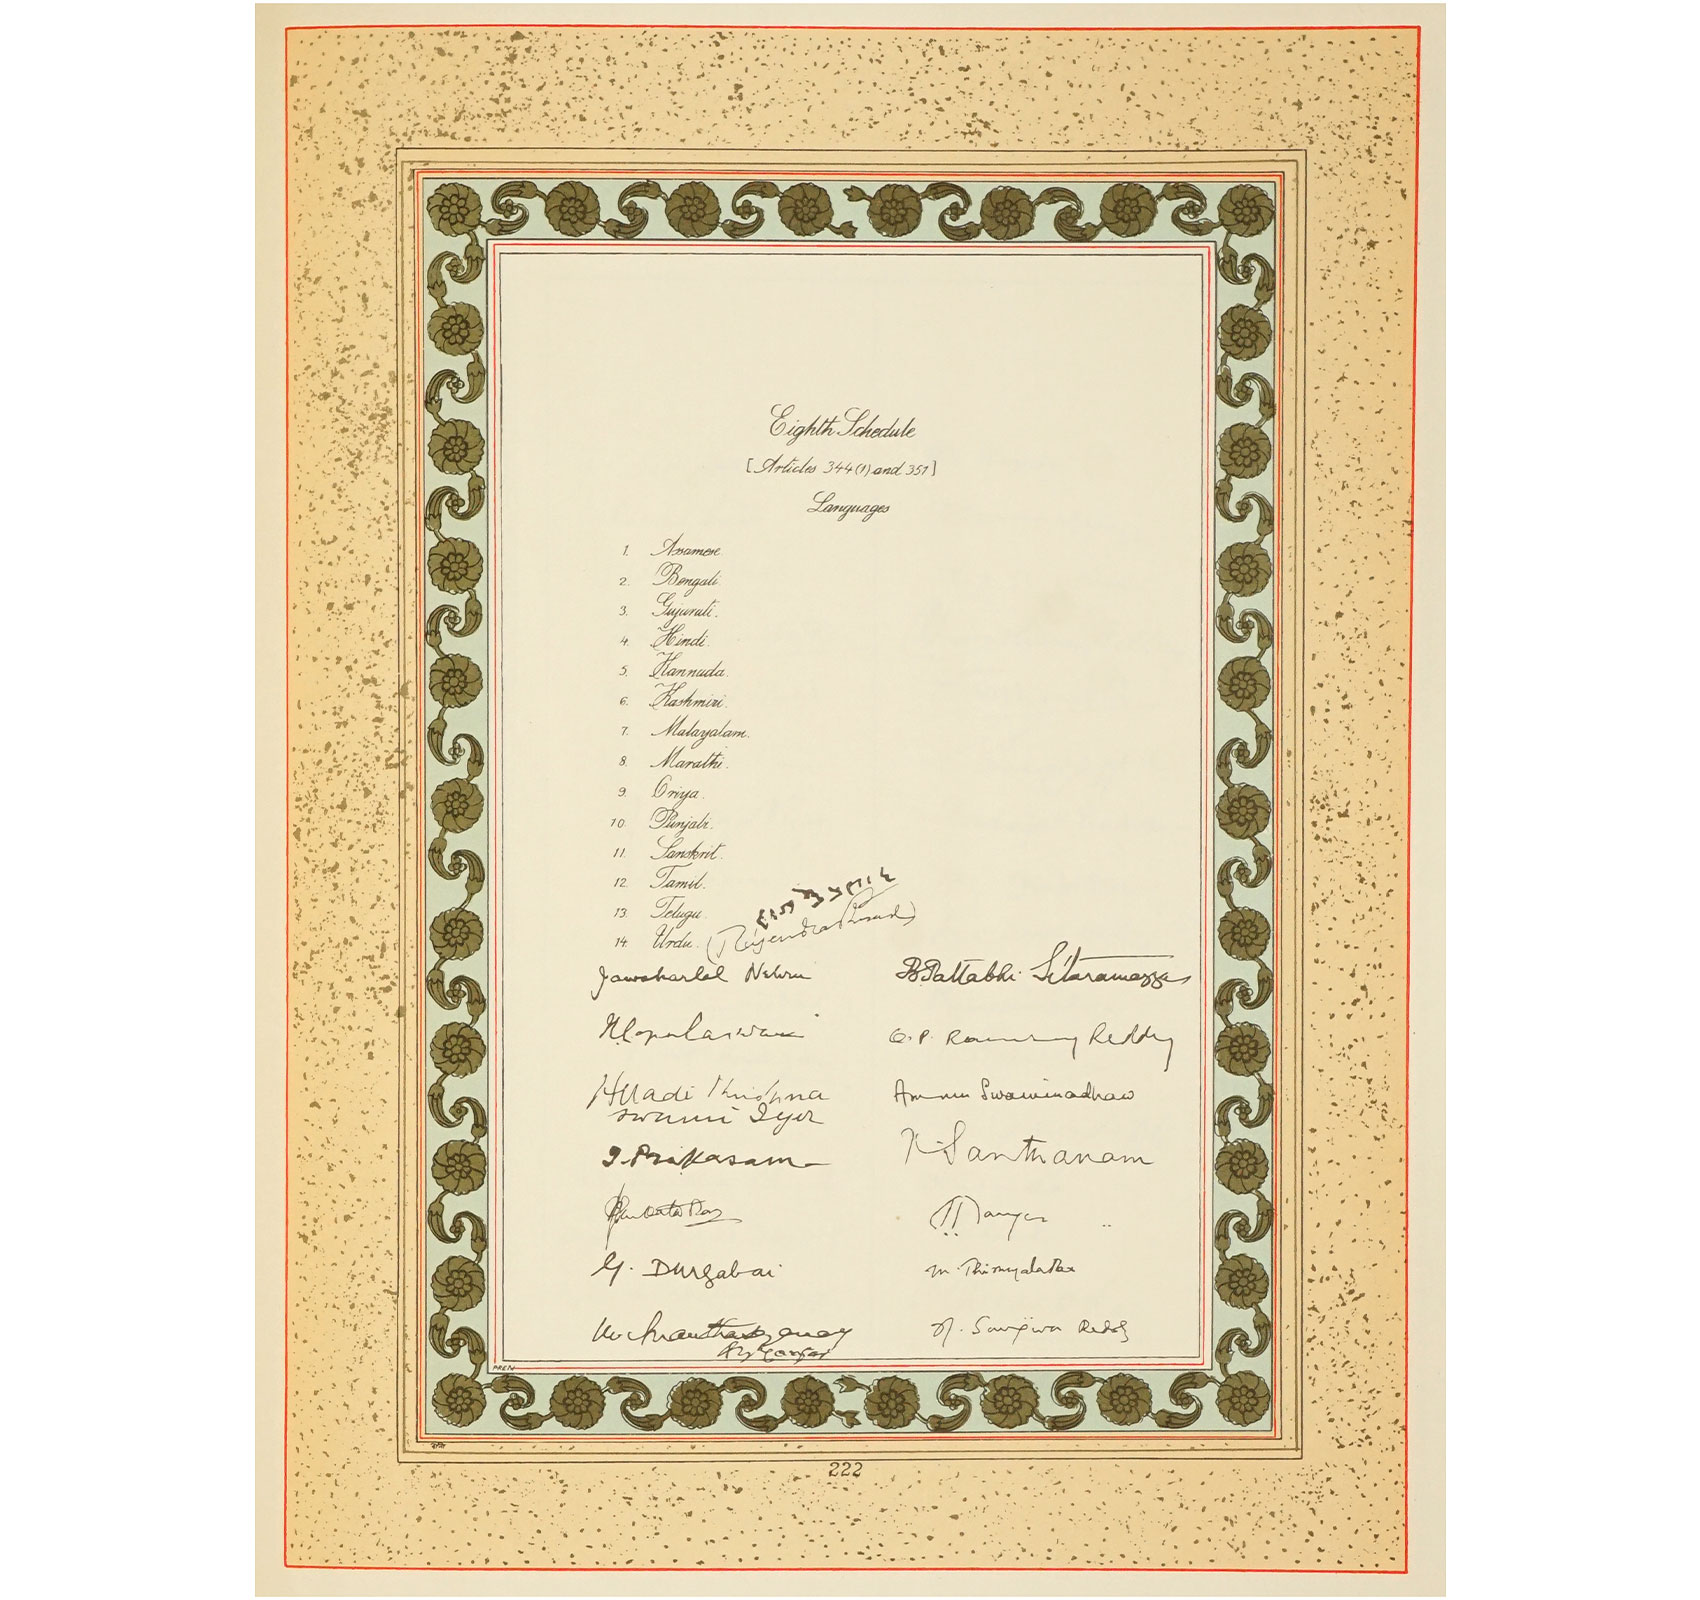 Eighth Schedule
[Articles 344(1) and 351]
Languages
1. Assamese.
2. Bengali.
3. Gujarati.
4. Hindi.
5. Kannada.
6. Kashmiri.
7. Malayalam.
8. Marathi.
9. Oriya.
10. Punjabi.
11. Sanskrit.
12. Tamil.
13. Telugu.
14. Urdu.
राजेन्द्र प्रसाद
(Rajendra Prasad)
Jawaharlal Nehru
B Pattabhi Sitaramayya
N Gopalaswami
O. P. Ramaswamy Reddy
Alladi Krishna
swami Iyer
Ammu Swaminadhan
T. Prakasam
K Santhanam
G. Durgabai
M. Thirumala Rao
N. Sanjiva Reddy
PREM
222